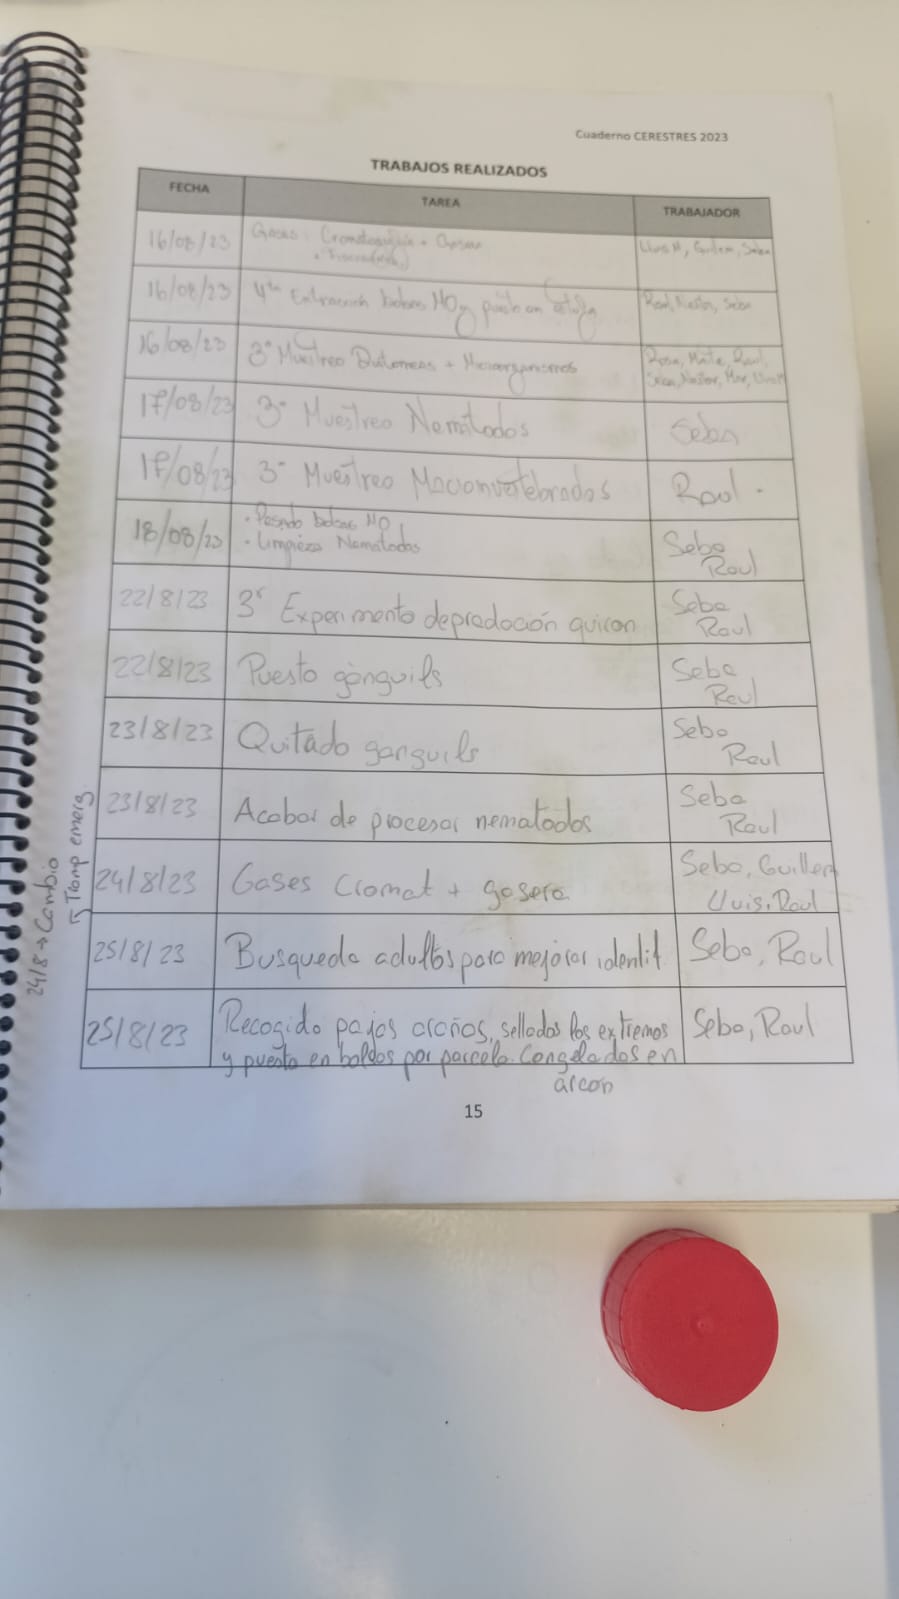 Cuaderno CERESTRES 2023
TRABAJOS REALIZADOS
FECHA TAREA TRABAJADOR
16/08/23 Gases: Cromatografía + Gasera Lluis M, Guillem, Seba
16/08/23 Extracción bolsas MO y puesto en estufa Raul, Nestor, Seba
16/08/23 3º Muestreo + Microorganismos Rosa, Maite, Raul,
Seba, Nestor, Mar, Lluis M
17/08/23 3º Muestreo Nemátodos Seba
17/08/23 3º Muestreo Macroinvertebrados Raul.
18/08/23 · Pesado bolsas MO
· Limpieza Nematodos Seba
Raul
22/8/23 3er Experimento depredación quiron Seba
Raul
22/8/23 Puesto gànguils Seba
Raul
23/8/23 Quitado ganguils Seba
Raul
23/8/23 Acabar de procesar nematodos Seba
Raul
24/8/23 Gases Cromat + gasera Sebo, Guillem
Lluis, Raul
25/8/23 Busqueda adultos para mejorar identif. Seba, Raul
25/8/23 Recogido pajas arañas, sellados los extremos Seba, Raul
y puesto en baldas por parcela. Congelados en
arcon
24/8 → Cambio
5 Tramp emerg
15